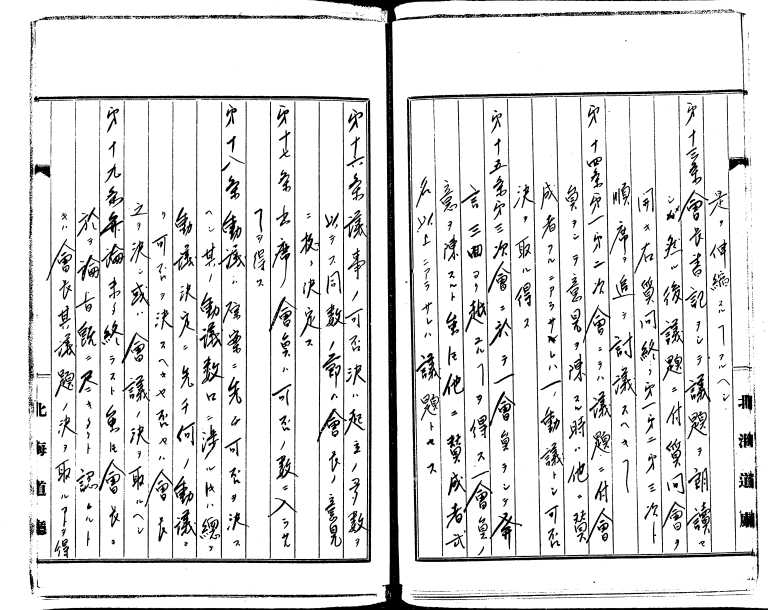 是ヲ伸縮スルヿアルヘシ
第十三条會長書記ヲシテ議題ヲ朗讀セ
シメ然ル後議題ニ付質問會ヲ
開キ右質問終テ第一第二第三次ト
順席ヲ追テ討議スヘキヿ
第十四条第一第二次會ニテハ議題ニ付會
員ヲシテ意見ヲ陳スル時ハ他ニ賛
成者アルニアラサレハ一ノ動議トシ可否
決ヲ取ル得ス
第十五条第三次會ニ於テ一會員ヲシテ発
言三回ヨリ越ユルヿヲ得ス一會員ノ
意ヲ陳スルト雖ピ他ニ賛成者弐
名以上ニアラサレハ議題トセス
第十六条議事ノ可否決ハ起立ノ多数ヲ
以テス同数ノ節ハ會長ノ意見
ニ拠テ決定ス
第十七条出席會員ハ可否ノ数ニ入ラサ
ルヿヲ得ス
第十八条動議ハ原案ニ先チ可否ヲ決ス
ヘシ其ノ動議数口ニ渉ル片ハ總テ
動議決定ニ先チ何ノ動議ヨ
リ可否ヲ決スヘキヤ否ヤハ會長
立テ決シ或ハ會議ノ決ヲ取ルヘシ
第十九条弁論未タ終ラスト雖ピ會長ニ
於テ論旨既ニ尽キタリト認ムルト
キハ會長其議題ノ決ヲ取ルヿヲ得
北海道廳
北海道廳